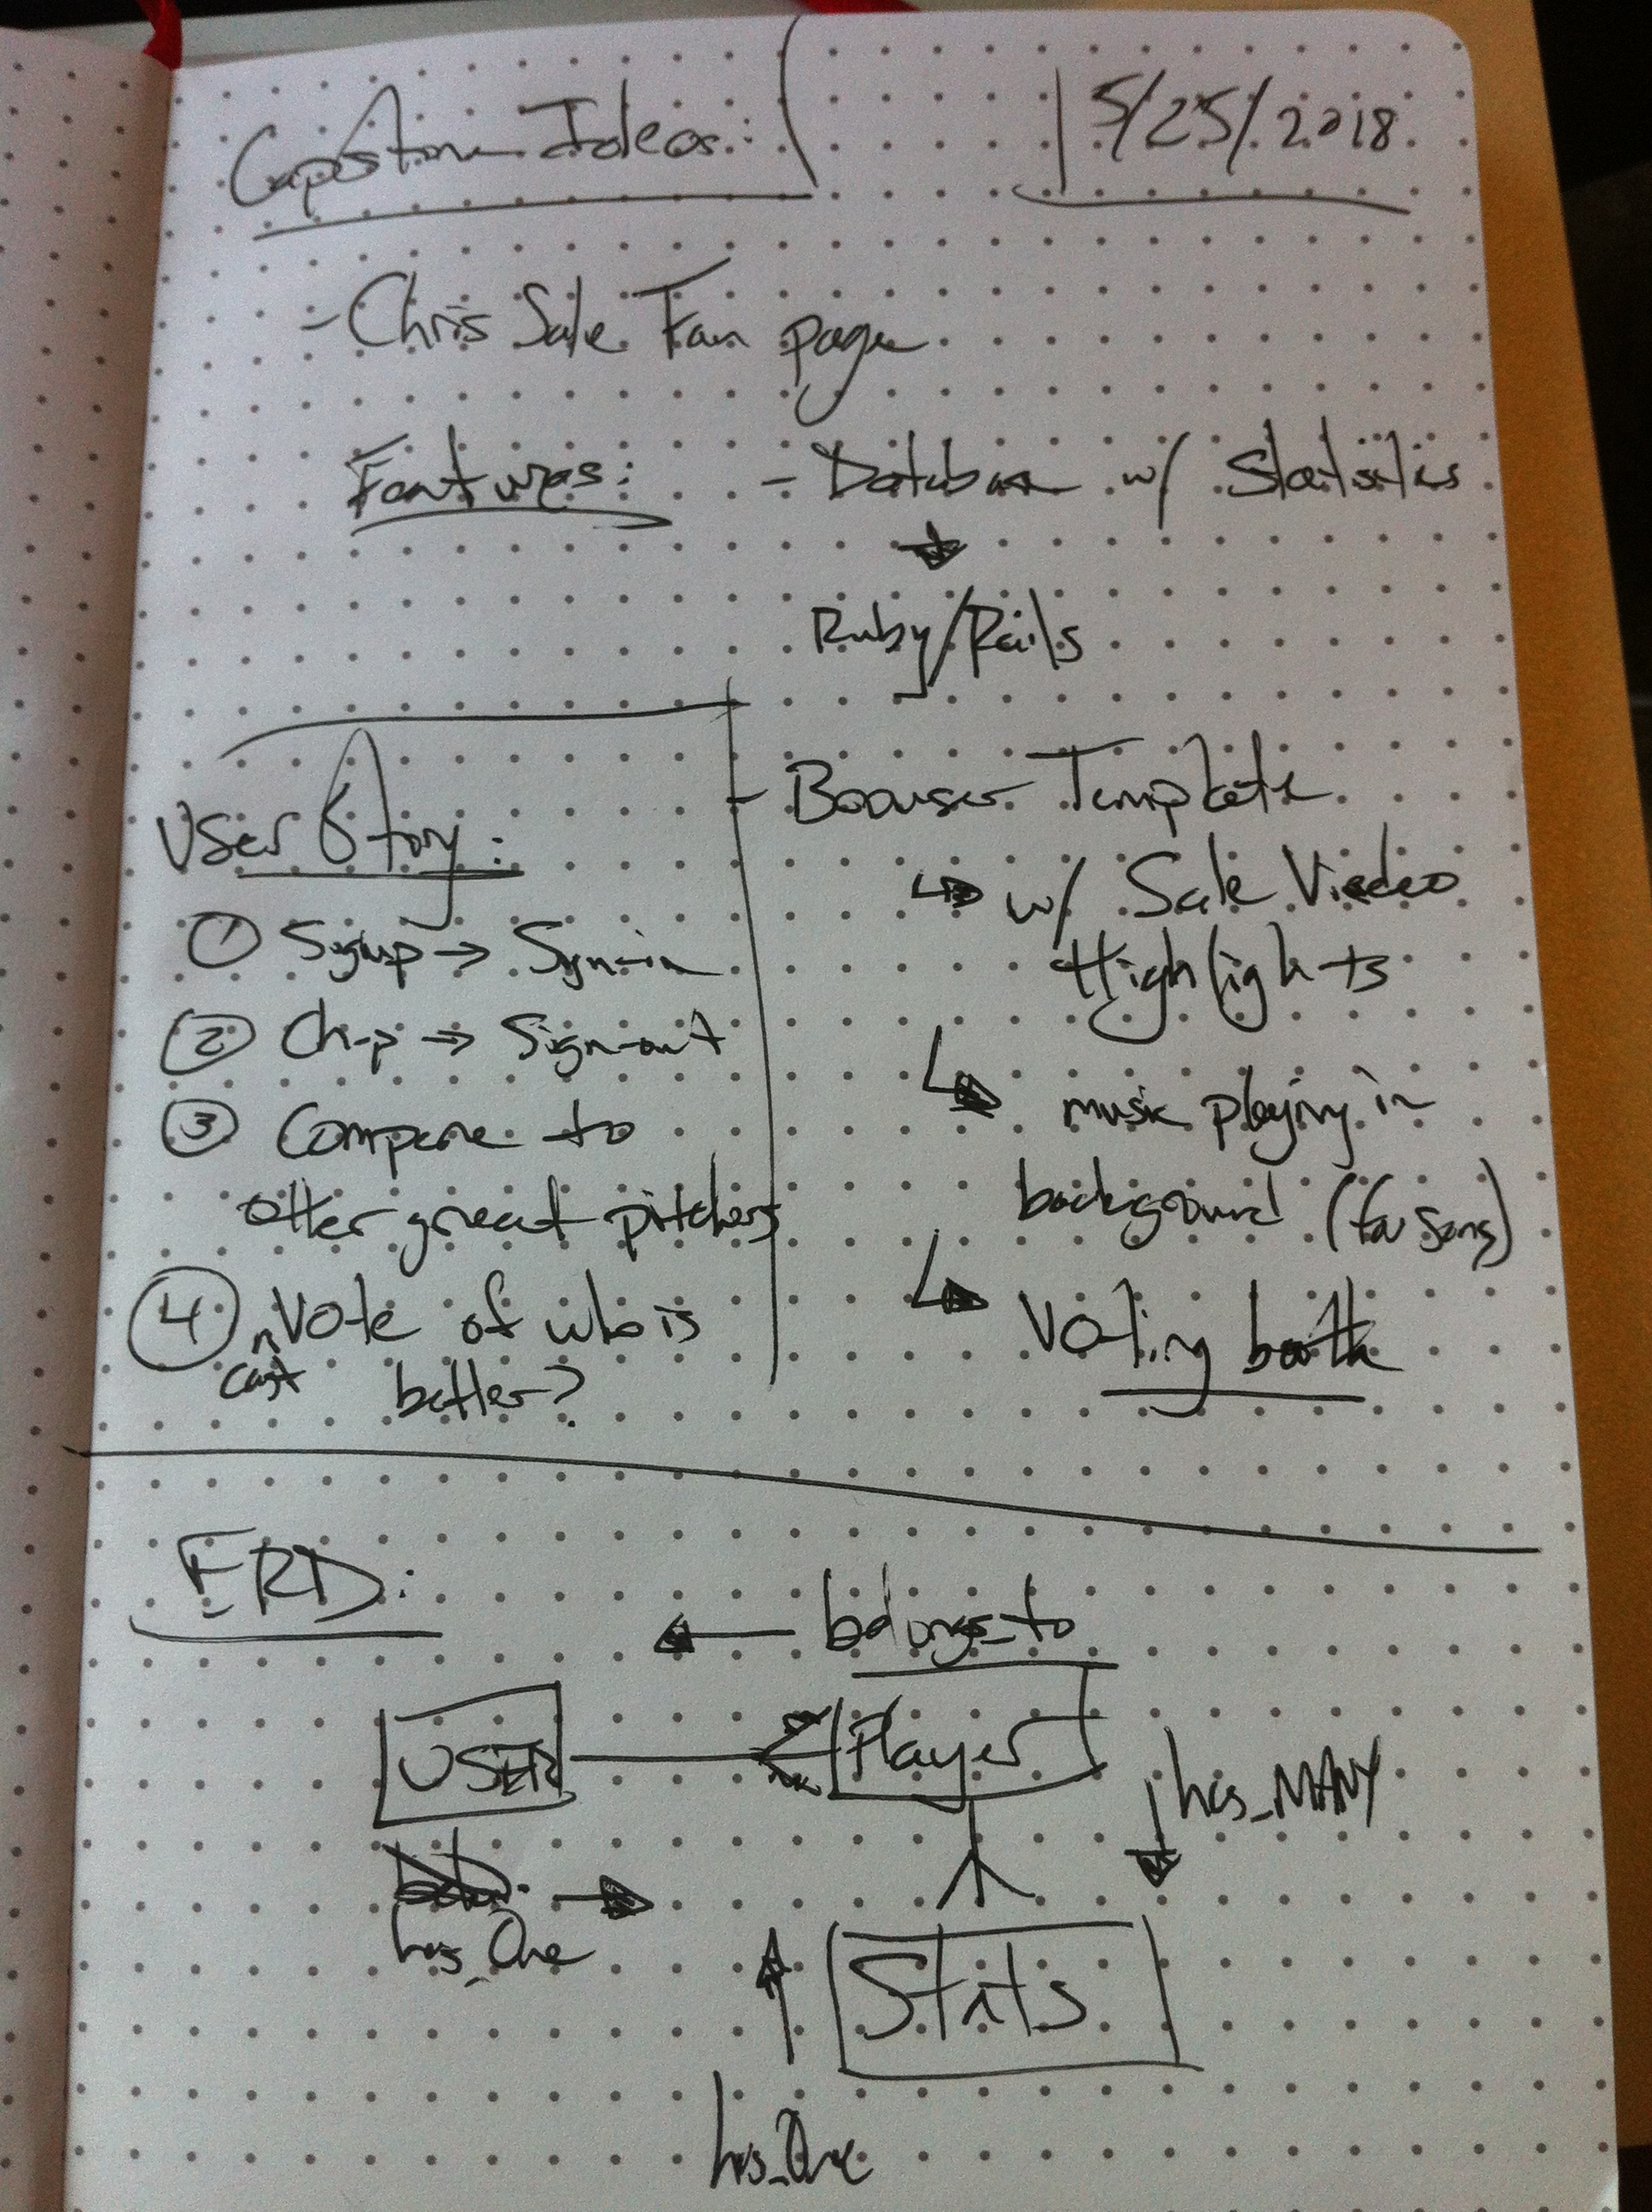 Capstone Ideas:
5/25/2018
- Chris Sale Fan page
Features:
- Database w/ Statistics
Ruby/Rails
- Broswer Template
w/ Sale Viedeo
Highlights
music playing in
background (fav song)
Voting booth
User Story:
① Signup → Sign-in
② Ch-p → Sign-out
③ Compare to
other great pitchers
④ Vote of who is
cast
better?
ERD:
← belongs_to
USER
Player
has_MANY
has_One
Stats
has_One